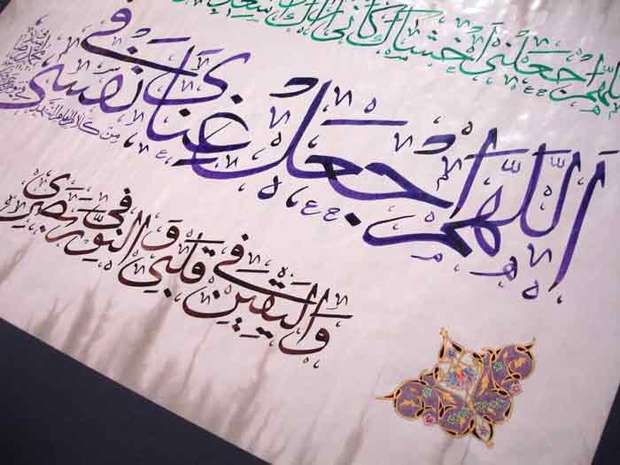 اللهم اجعلني اخشاك كأني أراك
اَللّهُمَّ اجْعَلْ غِنايَ في نَفْسي
وَالْيَقينَ في قَلْبي وَ النُّورَ في بَصَري